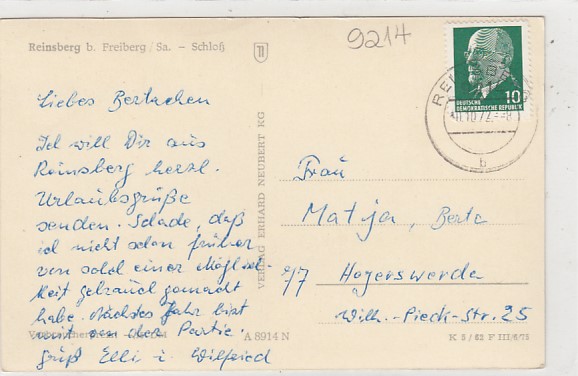 Reinsberg b. Freiberg/Sa. – Schloß
9214
10
DEUTSCHE
DEMOKRATISCHE REPUBLIK
Liebes Bertachen
Ich will Dir aus
Reinsberg herzl.
Urlaubsgrüße
senden. Schade, daß
ich nicht schon früher
von solch einer Möglich-
keit gebrauch gemacht
habe. Nächstes Jahr bist
mit von der Partie.
Gruß Elli u. Wilfried
VERLAG ERHARD NEUBERT KG
Frau
Matija, Berta
77 Hoyerswerda
Wilh.-Pieck-Str. 25
A 8914 N
K 5/62 F III/6/75
b